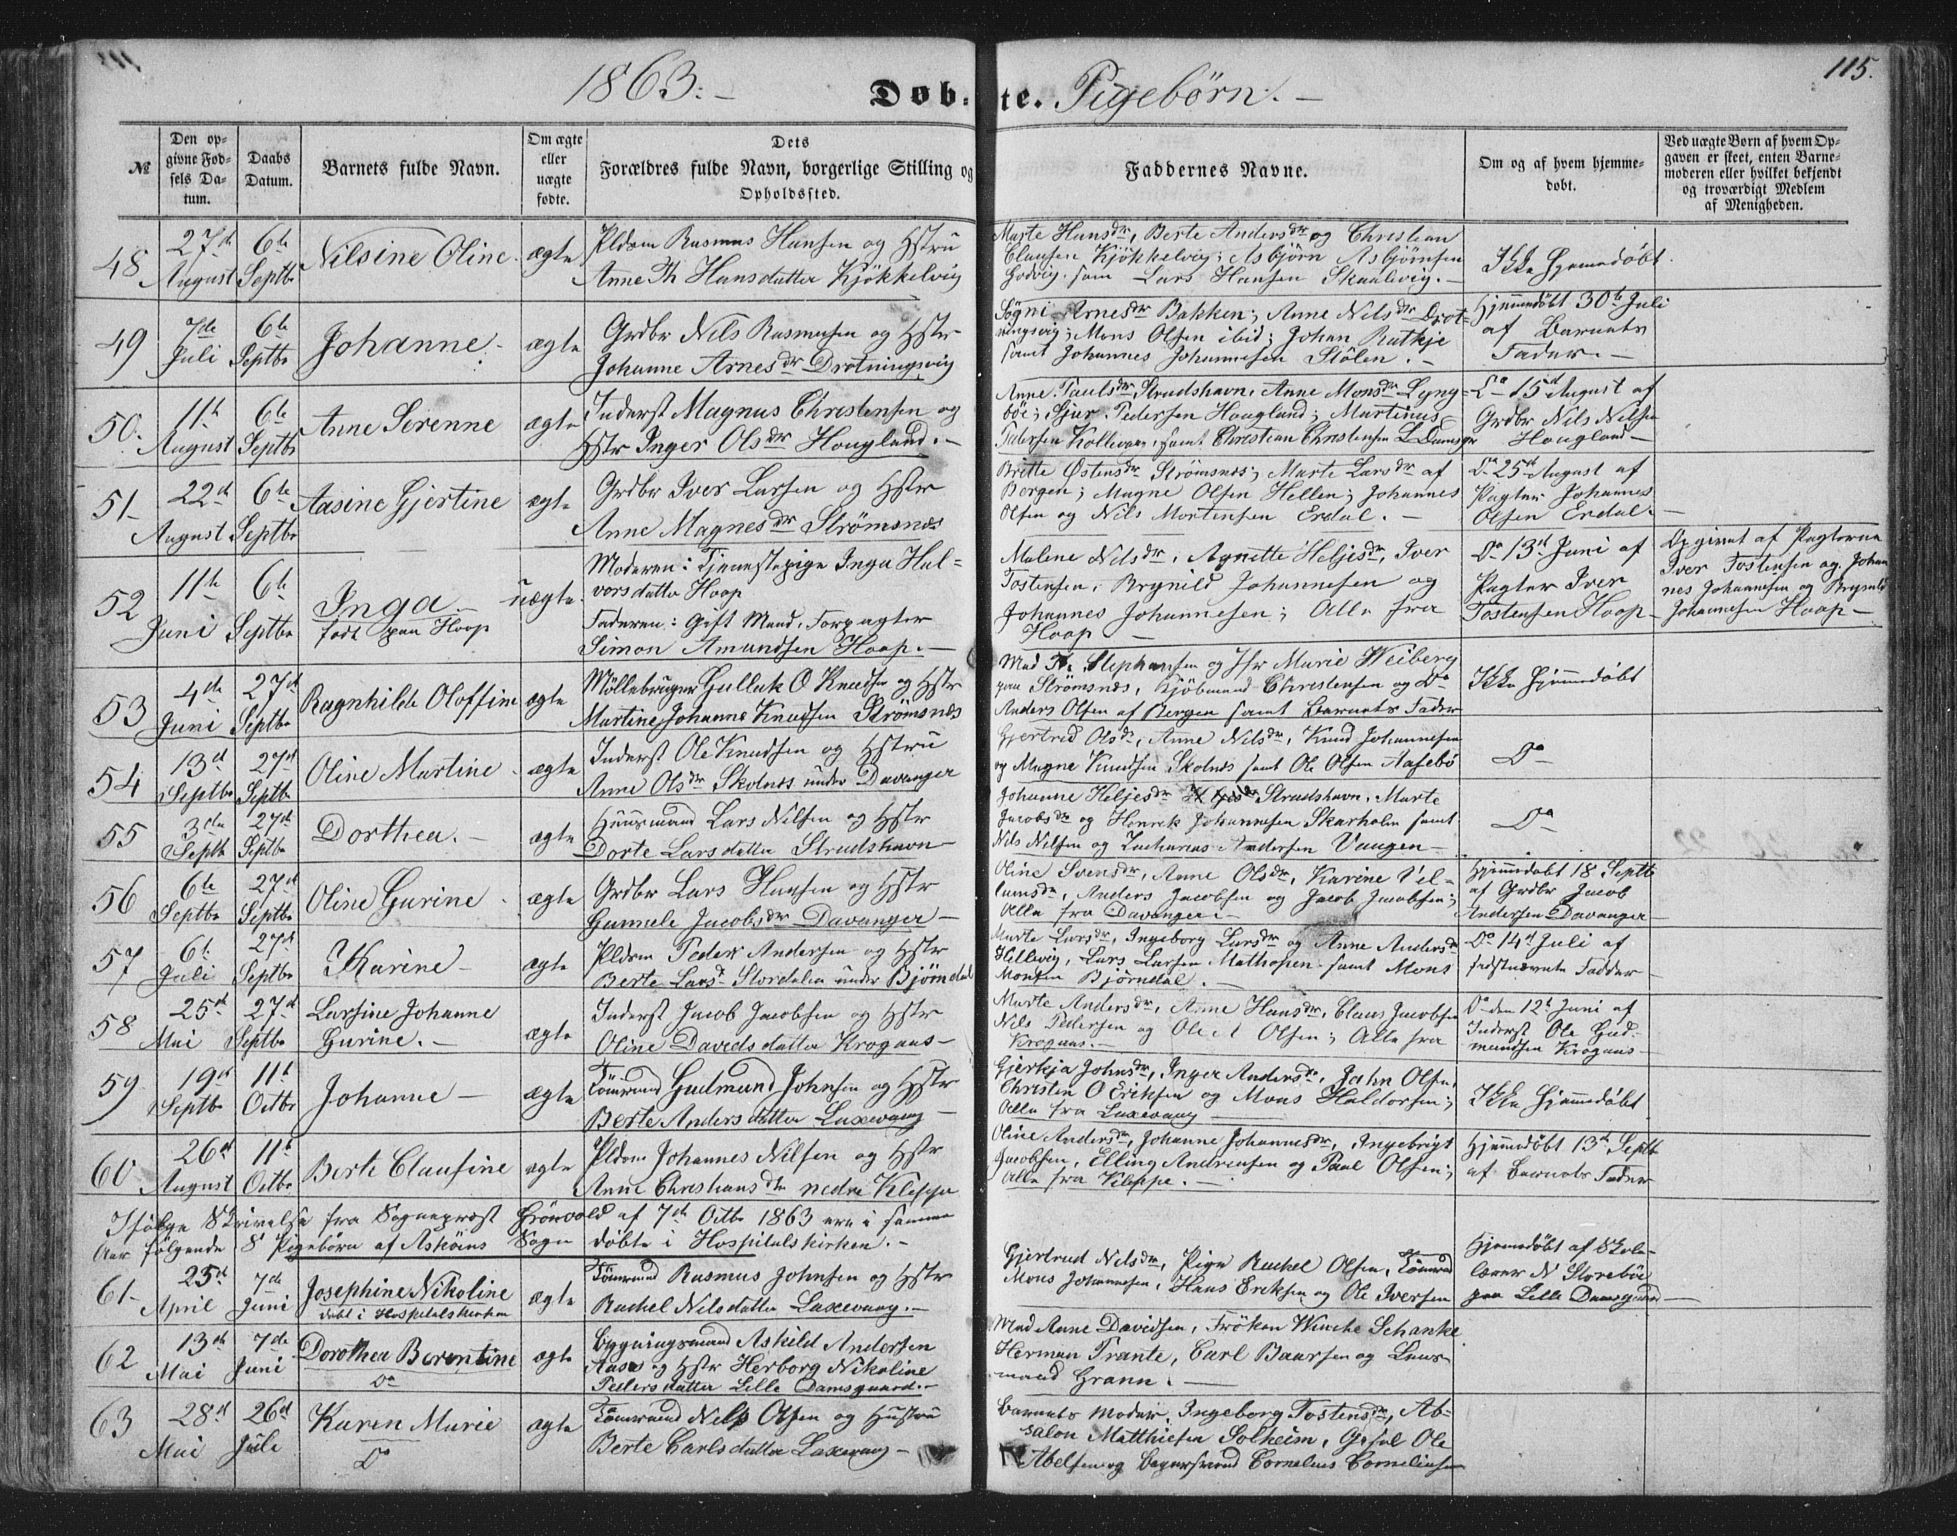 1863.
Døbte. Pigebørn.
115.
№
Den opgivne Fødsels Datum.
Daabs Datum.
Barnets fulde Navn.
Om ægte eller uægte fødte.
Dets Forældres fulde Navn, borgerlige Stilling og Opholdssted.
Faddernes Navne.
Om og af hvem hjemmedøbt.
Ved uægte Børn af hvem Opgaven er skeet, enten Barnemoderen eller hvilket bekjendt og troværdigt Medlem af Menigheden.
48. 27de August 6te Septbr Nilsine Oline ægte Pldsm Rasmus Hansen og Hstru
Anne Th Hansdatter Kjøkkelvig
Marte Hansdr, Berte Andersdr og Christian
Clausen Kjøkkelvig; Asbjørn Asbjørnsen
Godvig samt Lars Hansen Skaalevig.
Ikke Hjemmedøbt
49 7de Juli 6te Septbr Johanne ægte Grdbr Nils Rasmusen og Hstr
Johanne Arnesdr Drotningsvig
Søgni Arnesdr Bakken; Anne Nilsdr Drot=
ningsvig; Mons Olsen ibid; Johan Rutkje
samt Johannes Johannesen Stølen.
Hjemmedøbt 30te Juli
af Barnets
Fader.
50. 11te August 6te Septbr Anne Serenne ægte Inderst Magnus Christensen og
Hstr Inger Olsdr Hougland.
Anne Paulsdr Strudshavn, Anne Monsdr Lyng=
böe; Sjur Pedersen Hougland; Martinus
Pedersen Kollevaag, samt Christian Christensen L Damsgr
Do 15de August af
Grdbr Nils Nilsen
Hougland
51 22de August 6te Septbr Aasine Gjertine ægte Grdbr Iver Larsen og Hstr
Anne Magnesdr Strømsnæs
Britte Østensdr Strømsnes; Marte Larsdr af
Bergen; Magne Olsen Hellen; Johannes
Olsen og Nils Mortensen Erdal.
Do 25de August af
Pagter Johannes
Olsen Erdal.
52 11te Juni 6te Septbr Inga
født paa Hoop
uægte Moderen: Tjenestepige Inga Hal=
vorsdatter Hoop
Faderen: Gift Mand, Forpagter
Simon Amundsen Hoop.
Malene Nilsdr, Agnette Heljesdr, Iver
Tostensen, Brynild Johannesen og
Johannes Johannesen; Alle fra
Hoop
Do 13de Juni af
Pagter Iver
Tostensen Hoop
Opgivet af Pagterne
Iver Tostensen og Johan
nes Johannesen og Brynild
Johannesen Hoop
53 4de Juni 27de Septbr Ragnhilde Oloffine ægte Møllebruger Gulluk O Knudsen og Hstr
Martine Johanne Knudsen Strømsnæs
Mad Stephansen og Jfr Marie Weiberg
paa Strømsnes, Kjöbmand Christensen og Do
Anders Olsen af Bergen samt Barnets Fader
Ikke Hjemmedøbt
54 13de Septbr 27de Septbr Oline Martine ægte Inderst Ole Knudsen og Hstru
Anne Olsdr Skolnes under Davanger
Gjertrud Olsdr, Anne Nilsdr, Knud Johannesen
og Magne Knudsen Skolnes samt Ole Olsen Aasebø
Do
55 3die Septbr 27de Septbr Dorthea. ægte Huusmand Lars Nilsen og Hstr
Dorte Larsdatter Strudshavn
Johanne Heljesdr Strudshavn, Marte
Jacobsdr og Henrik Johannesen Skarholm samt
Nils Nilsen og Zacharias Andersen Vaagen
Do
56 6te Septbr 27de Septbr Oline Gurine ægte Grdbr Lars Hansen og Hstr
Gunnele Jacobsdr Davanger
Oline Svensdr, Anne Olsdr, Karine Vil=
lumsdr, Anders Jacobsen og Jacob Jacobsen;
Alle fra Davanger.
Hjemmedøbt 18 Septbr
af Grdbr Jacob
Andersen Davanger
57 6te Juli 27de Septbr Karine ægte Pldsm Peder Andersen og Hstr
Berte Larsd Stordalen under Bjørndal
Marte Larsdr, Ingeborg Larsdr og Anne Andersdr
Hillevig, Lars Larsen Mathopen samt Mons
Monsen Bjørndal.
Do 14de Juli af
sidstnævnte Fadder
58 25de Mai 27de Septbr Larsine Johanne
Gurine.
ægte Inderst Jacob Jacobsen og Hstr
Oline Davidsdatter Krogaas
Marte Andersdr, Anne Hansdr, Claus Jacobsen
Nils Pedersen og Ole Olsen; Alle fra
Krogaas.
Do den 12te Juni af
Inderst Ole Gud=
mundsen Krogaas
59 19de Septbr 11te Octbr Johanne ægte Tømmermand Gudmund Johnsen og Hstr
Berte Andersdatter Laxevaag
Gjertrja Johnsdr, Inger Andersdr, John Olsen,
Christen O Eriksen og Mons Haldorsen;
Alle fra Laxevaag
Ikke Hjemmedøbt
60 26de August 11te Octbr Berte Clausine ægte Pldsm Johannes Nilsen og Hstr
Anne Christiansdtr nedre Kleppe
Oline Andersdr, Johanne Johannesdr, Ingebrigt
Jacobsen, Elling Andreasen og Paul Olsen;
Alle fra Kleppe.
Hjemmedøbt 13de Septbr
af Barnets Fader
Ifølge Skrivelse fra Sogneprest Grönvold af 7de Octbr 1863 ere i samme
Aar følgende 8 Pigebørn af Askøens Sogn døbte i Hospitalskirken.
61 25de April 7de Juni Josephine Nikoline
døbt i Hospitalskirken
ægte Tømrmd Rasmus Johnsen og Hstr
Rachel Nilsdatter Laxevaag.
Gjertrud Nilsdr, Pige Rachel Olsen, Tömrmd
Mons Johannesen, Hans Eriksen og Ole Iversen
Hjemmedøbt af Skole=
lærer N Storebøe
paa Lille Damsgaard
62 13de Mai 7de Juni Dorothea Berentine
Do
ægte Bygningsmand Askild Andersen
Aase og Hstr Herborg Nikoline
Pedersdatter Lille Damsgaard.
Mad Anne Davidsen, Frøken Wenche Schanke
Herman Trante, Carl Baarsen og Laus=
mand Grann.
63 28de Mai 26de Juli Karen Marie
Do
ægte Tömrmand Nils Olsen og Hustru
Berte Carlsdatter Laxevaag
Barnets Moder, Ingeborg Tostensdr, Ab=
salon Matthiesen Solheim, Gesel Ole
Abelsen og Bagersvend Cornelius Corneliusen